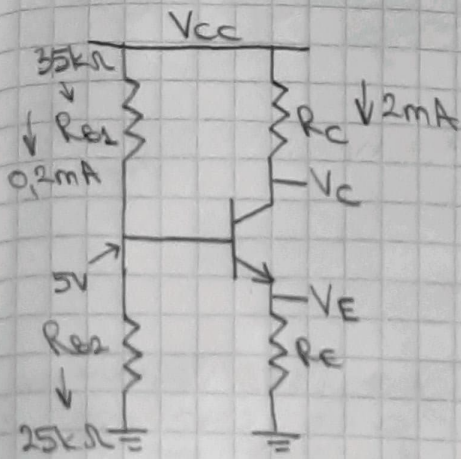 Vcc
35kΩ
RB1
0,2mA
RC
2mA
VC
5V
VE
RB2
RE
25kΩ